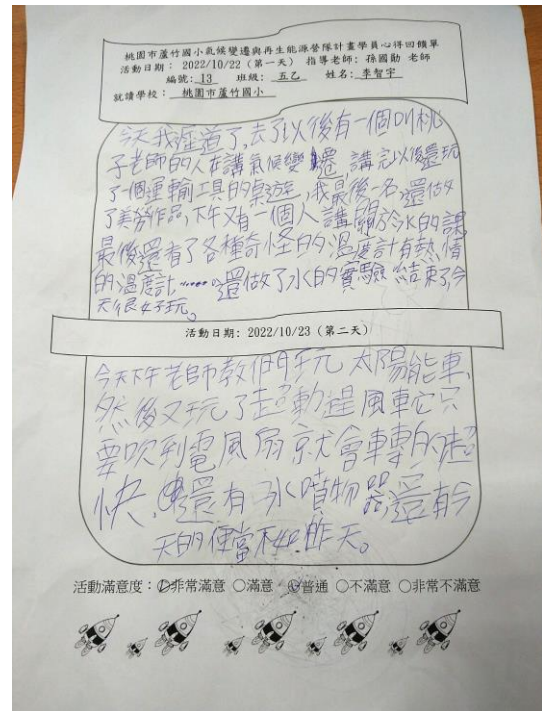 桃園市蘆竹國小氣候變遷與再生能源營隊計畫學員心得回饋單
活動日期: 2022/10/22 (第一天) 指導老師: 孫國勛 老師
編號: 13 班級: 五乙 姓名: 李智宇
就讀學校: 桃園市蘆竹國小
今天我遲道了,去了以後有一個叫桃
子老師的人在講氣候變遷,講完以後還玩
了一個運輸工具的桌遊,我最後一名,還做
了美勞作品,下午又有一個人講關於水的課
最後還看了各種奇怪的溫度計有熱情
的溫度計……還做了水的實驗結束了今
天很好玩。
活動日期: 2022/10/23 (第二天)
今天下午老師教們玩太陽能車,
然後又玩了超動 風車它只
要吹到電風扇就會轉的超
快,還有水噴物器還有今
天的便當不如昨天。
活動滿意度: 非常滿意 ○滿意 普通 ○不滿意 ○非常不滿意